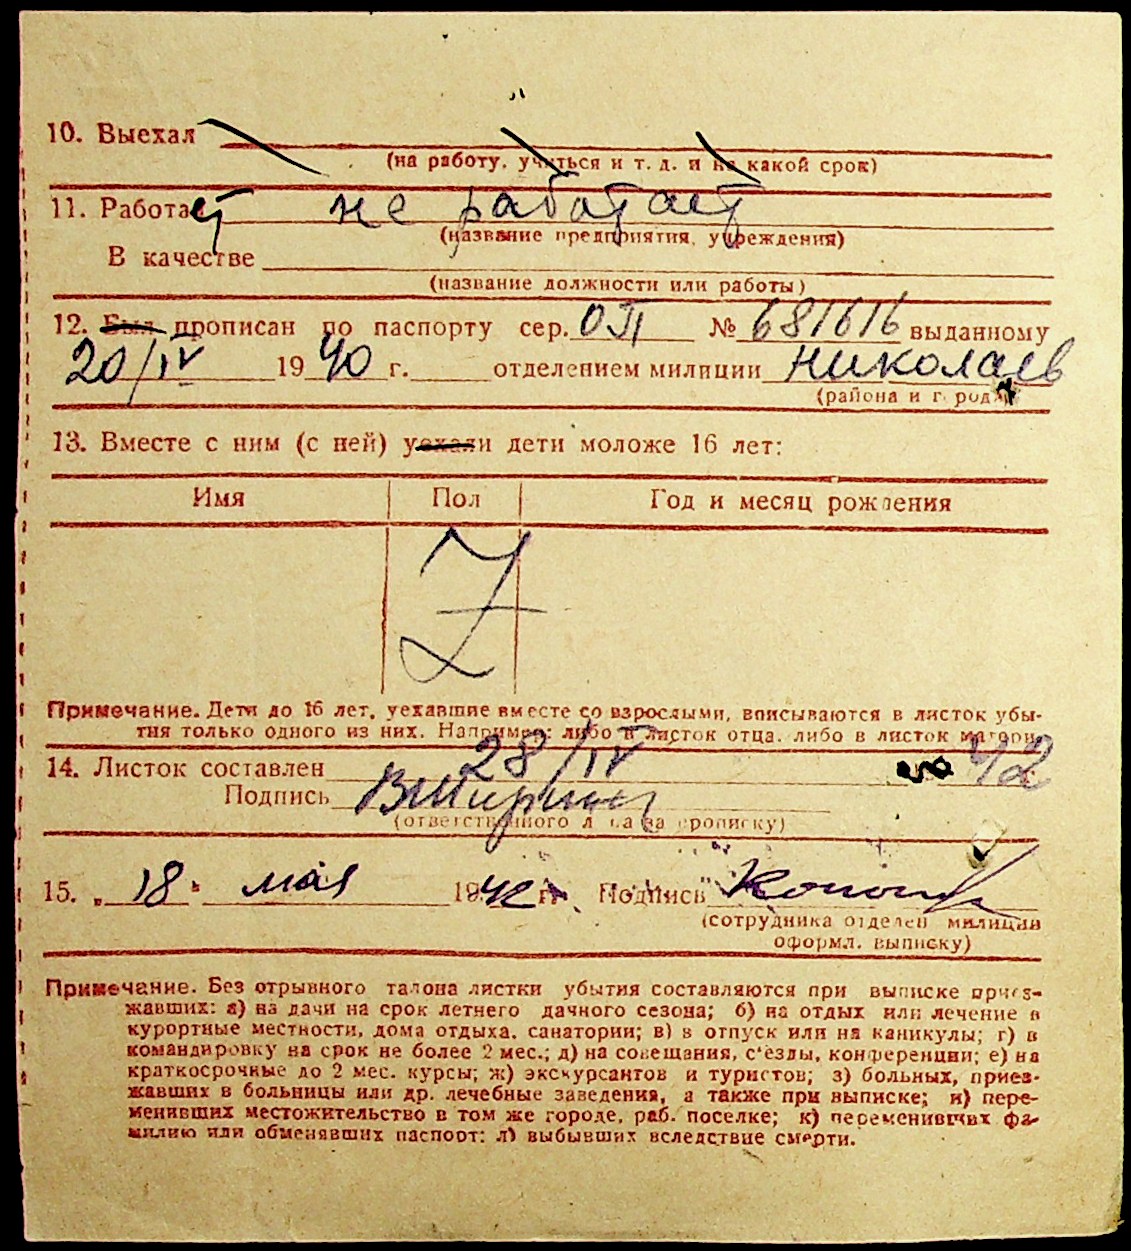 10. Выехал
(на работу, учиться и т. д. и на какой срок)
11. Работает не работает
(название предприятия, учреждения)
В качестве
(название должности или работы)
12. Был прописан по паспорту сер. ОП № 681616 выданному
20/IV 1940 г. отделением милиции Николаев
(района и города)
13. Вместе с ним (с ней) уехали дети моложе 16 лет:
Имя Пол Год и месяц рождения
Z
Примечание. Дети до 16 лет, уехавшие вместе со взрослыми, вписываются в листок убы-
тия только одного из них. Например: либо в листок отца, либо в листок матери.
14. Листок составлен 28/IV 42
Подпись
(ответственного лица за прописку)
15. „18" мая 1942 г. Подпись
(сотрудника отделен. милиции
оформл. выписку)
Примечание. Без отрывного талона листки убытия составляются при выписке приез-
жавших: а) на дачи на срок летнего дачного сезона; б) на отдых или лечение в
курортные местности, дома отдыха, санатории; в) в отпуск или на каникулы; г) в
командировку на срок не более 2 мес.; д) на совещания, с'езды, конференции; е) на
краткосрочные до 2 мес. курсы; ж) экскурсантов и туристов; з) больных, приез-
жавших в больницы или др. лечебные заведения, а также при выписке; и) пере-
менивших местожительство в том же городе, раб. поселке; к) переменивших фа-
милию или обменявших паспорт; л) выбывших вследствие смерти.